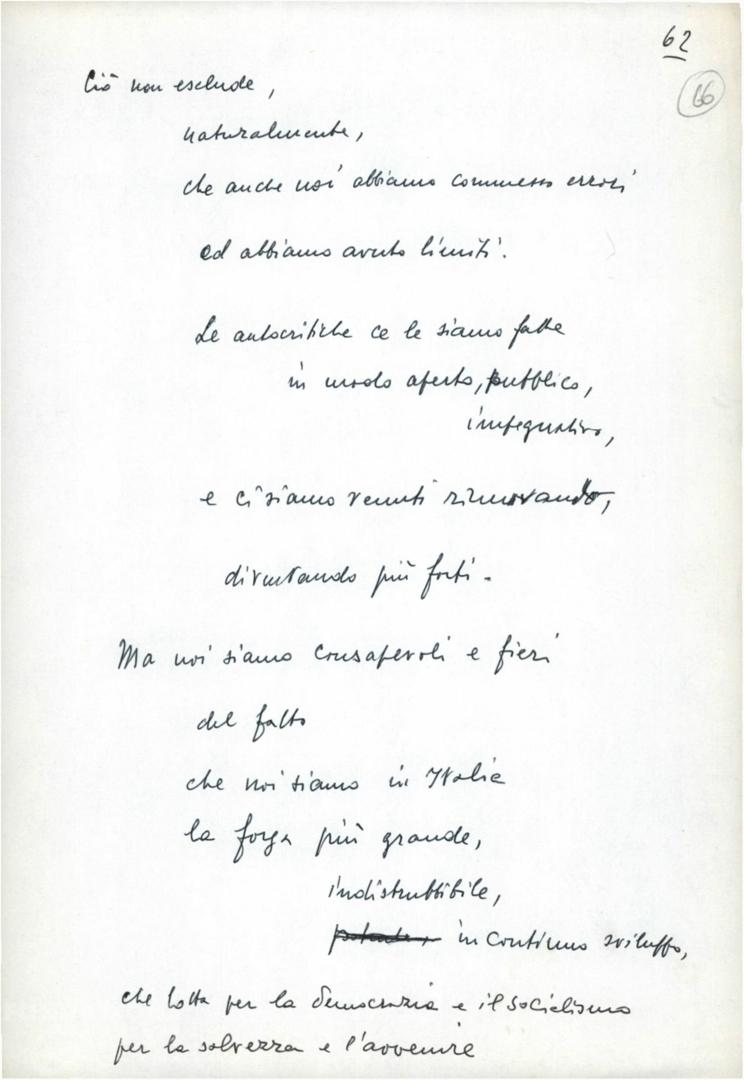 62
66
Ciò non esclude,
naturalmente,
che anche noi abbiamo commesso errori
ed abbiamo avuto limiti.
Le autocritiche ce le siamo fatte
in modo aperto, pubblico,
impegnativo,
e ci siamo venuti rinnovando,
diventando più forti.
Ma noi siamo consapevoli e fieri
del fatto
che noi siamo in Italia
la forza più grande,
indistruttibile,
potente, in continuo sviluppo,
che lotta per la democrazia e il socialismo
per la salvezza e l'avvenire